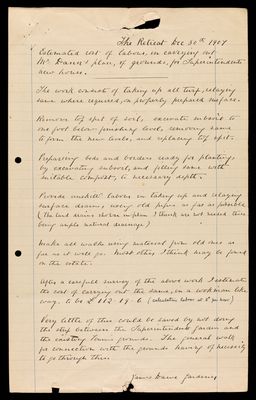 The Retreat Dec 30th 1907
Estimated cost of labour, in carrying out
Mr plan, of grounds, for Superintendents
new house.
The work consists of taking up all turf, relaying
same where required, on properly prepared surface.
Remove top spit of soil, excavate subsoil to
one foot below finishing level, removing same
to form the new levels, and replacing top spit.
Preparing beds and borders ready for planting,
by excavating subsoil, and filling same with
suitable compost, to necessary depth.
Provide unskilled labour in taking up and relaying
surface drains, using old pipes as far as possible
(The land drains shown in plan I think are not needed there
being ample natural drainage)
Make all walks using material from old ones as
far as it will go. Most others I think may be found
on the estate.
After a careful survey of the above work I estimate
the cost of carrying out the same, in a workman like
way, to be £ 112-17-6 (calculation labour at per hour)
Very little of this could be saved by not doing
the strip between the Superintendents garden and
the existing Tennis grounds. The general walk
for connection with the grounds having of necessity
to go through this.
James Dawe Gardener